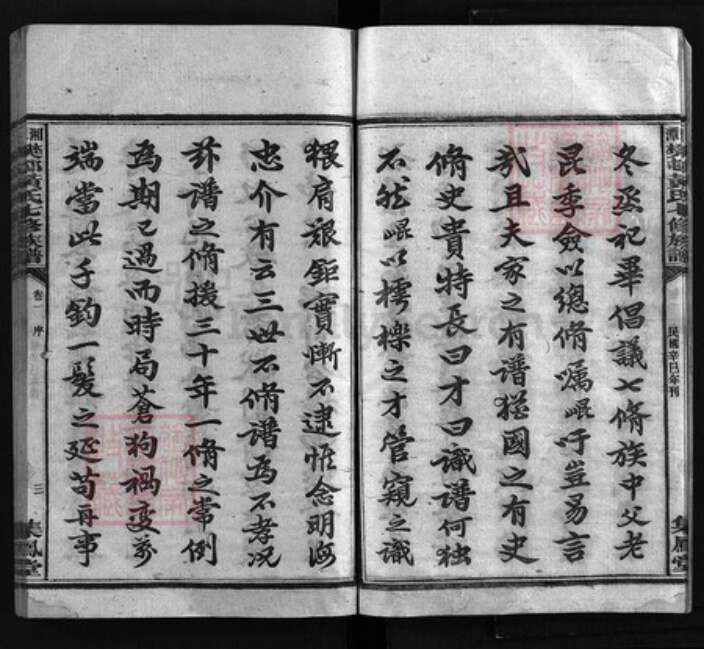 冬烝祀畢倡議七脩族中父老
昆季僉以總脩囑崐吁豈易言
哉且夫家之有譜猶國之有史
脩史貴特長曰才曰識譜何獨
不然崐以樗櫟之才管窺之識
猥肩艱鉅實慚不逮惟念明海
忠介有云三世不脩譜爲不孝况
茲譜之脩援三十年一脩之常例
爲期已過而時局蒼狗禍變萬
端當此千鈞一髮之延苟再事
黃氏七修族譜
民國辛巳年刊
集鳳堂
黃氏七修族譜
卷一 序
三
集鳳堂